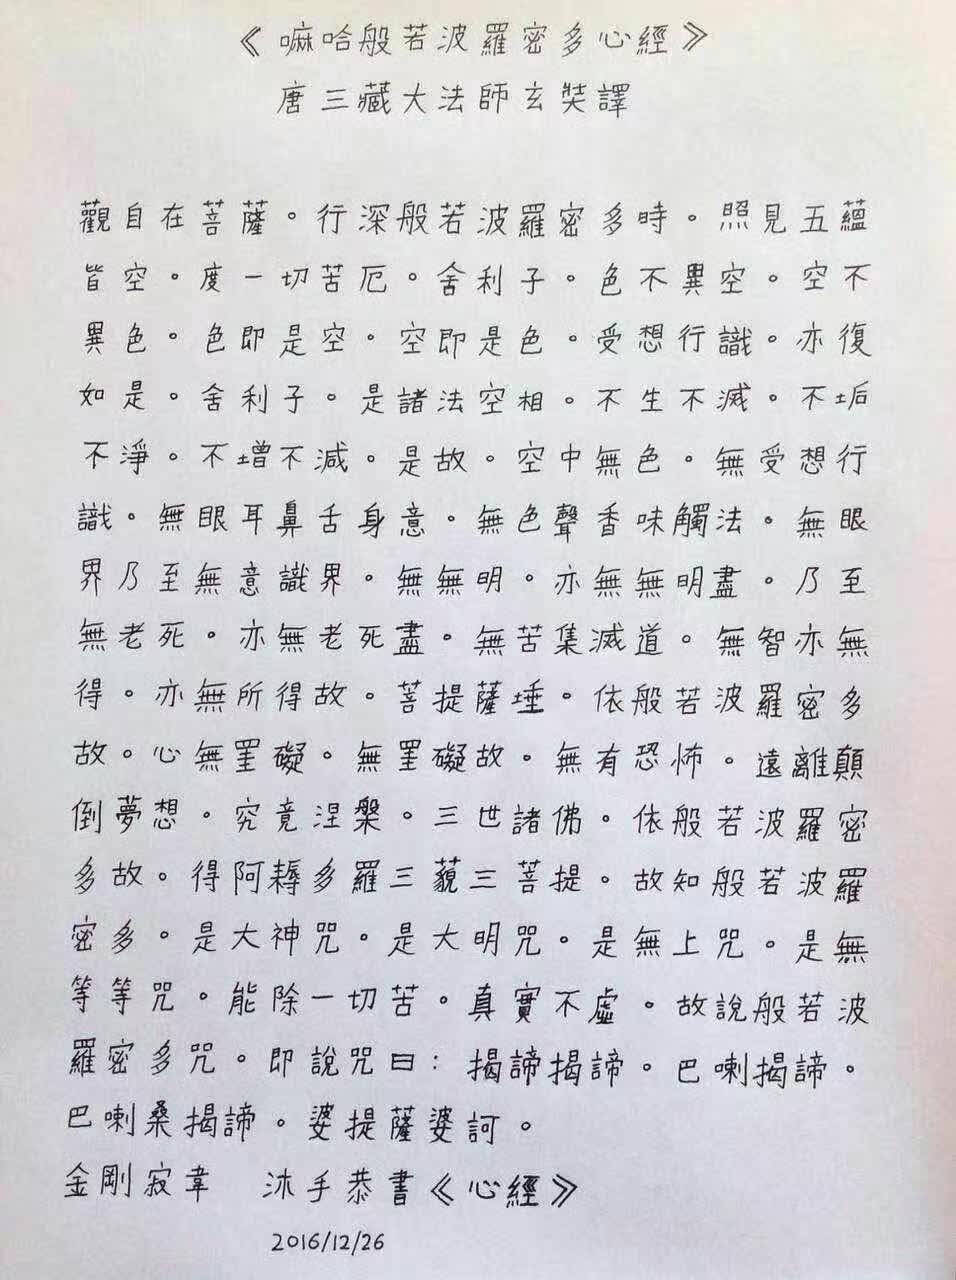 《嘛哈般若波羅密多心經》
唐三藏大法師玄奘譯
觀自在菩薩。行深般若波羅密多時。照見五蘊
皆空。度一切苦厄。舍利子。色不異空。空不
異色。色即是空。空即是色。受想行識。亦復
如是。舍利子。是諸法空相。不生不滅。不垢
不淨。不增不減。是故。空中無色。無受想行
識。無眼耳鼻舌身意。無色聲香味觸法。無眼
界乃至無意識界。無無明。亦無無明盡。乃至
無老死。亦無老死盡。無苦集滅道。無智亦無
得。亦無所得故。菩提薩埵。依般若波羅密多
故。心無罣礙。無罣礙故。無有恐怖。遠離顛
倒夢想。究竟涅槃。三世諸佛。依般若波羅密
多故。得阿耨多羅三藐三菩提。故知般若波羅
密多。是大神咒。是大明咒。是無上咒。是無
等等咒。能除一切苦。真實不虛。故說般若波
羅密多咒。即說咒曰：揭諦揭諦。巴喇揭諦。
巴喇桑揭諦。婆提薩婆訶。
金剛寂韋 沐手恭書《心經》
2016/12/26